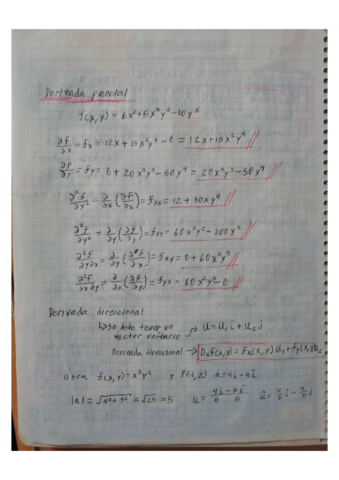 Derivada parcial
f(x,y) = 6x²+5x³y⁴-10y⁵
∂f/∂x = fx = 12x + 15x²y⁴ - 0 = 12x+15x²y⁴
∂f/∂y = fy = 0 + 20x³y³ - 50y⁴ = 20x³y³ - 50y⁴
∂²f/∂x² = ∂/∂x (∂f/∂x) = fxx = 12 + 30xy⁴
∂²f/∂y² = ∂/∂y (∂f/∂y) = fyy = 60x³y² - 200y³
∂²f/∂y∂x = ∂/∂y (∂f/∂x) = fxy = 0 + 60x²y³
∂²f/∂x∂y = ∂/∂x (∂f/∂y) = fyx = 60x²y³ - 0
Derivada direccional
↳ se debe tener un vector unitario → u = u₁i + u₂j
Derivada direccional → Duf(x,y) = fx(x,y) u₁ + fy(x,y) u₂
f(x,y) = x³y² y P(-1,2) a = 4i - 3j
|a| = √4²+3² = √25 = 5 u =